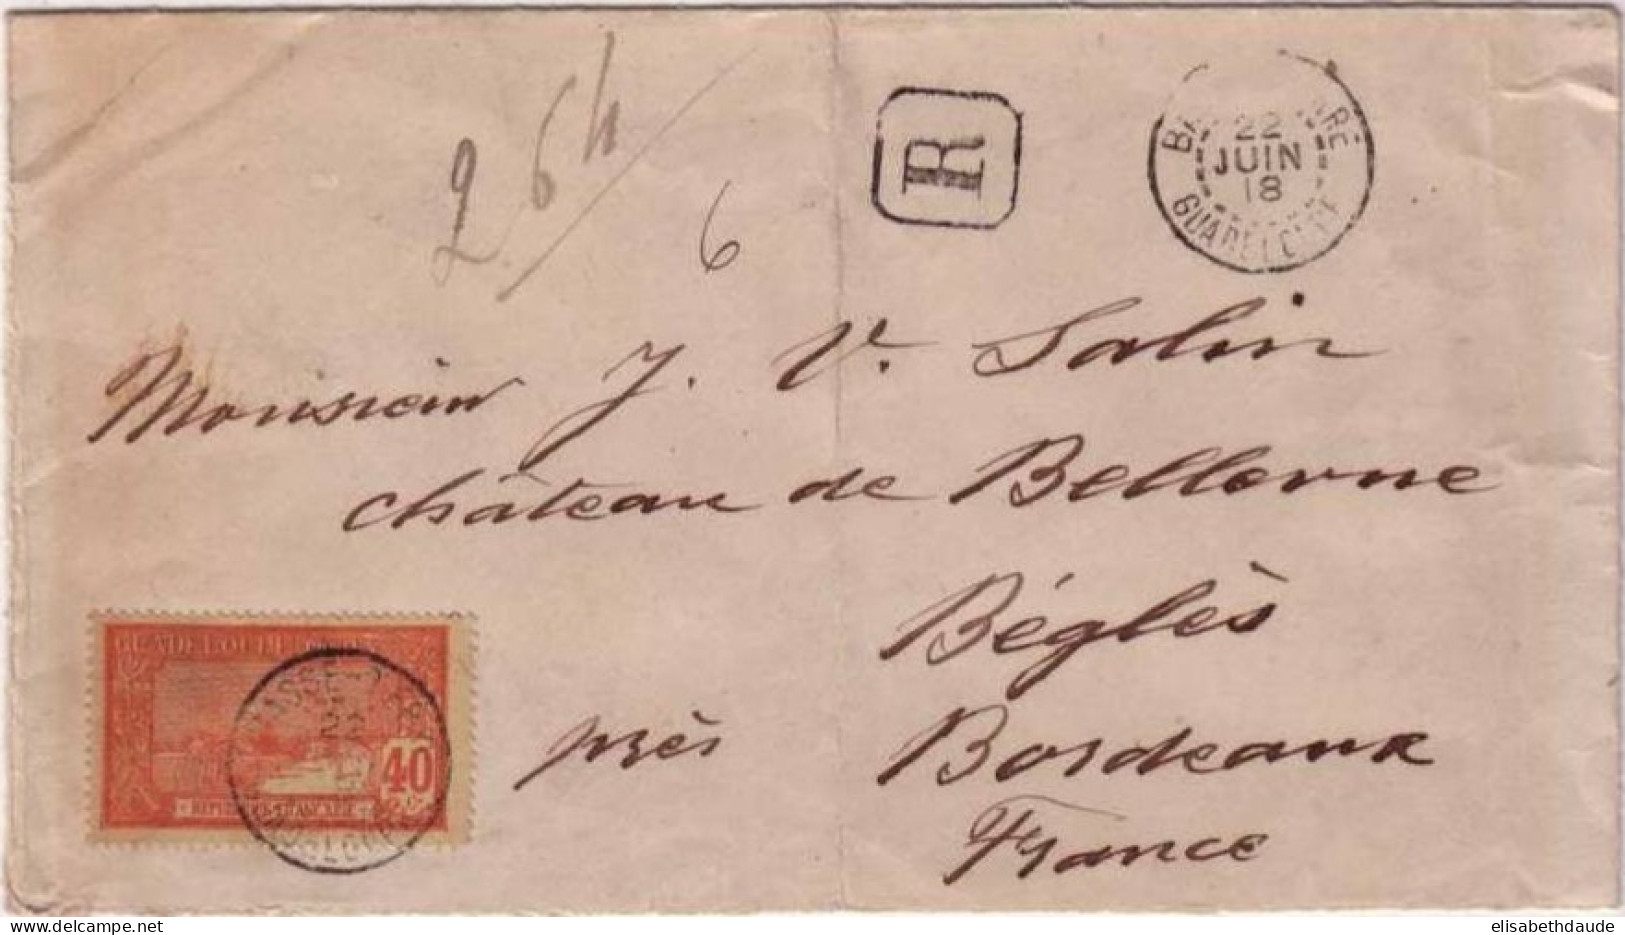 2.64
6
R
22
JUIN
18
GUADELOUPE
Monsieur J. V. Salin
château de Bellevue
Béglès
près Bordeaux
France
GUADELOUPE
40
REPUBLIQUE FRANÇAISE
elisabethdaude